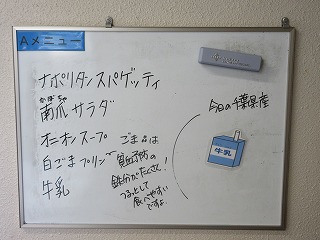 Aメニュー
ナポリタンスパゲッティ
かぼちゃ
南瓜サラダ
オニオンスープ
白ごまプリン
牛乳
ごま品は
貧血予防の
鉄分がたくさん!
つるっとして
食べやすい
ですよ。
今日の千葉県産
牛乳